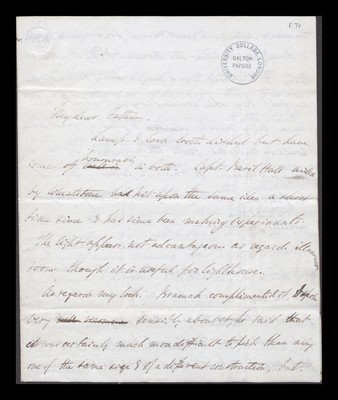 UNIVERSITY COLLEGE LONDON
GALTON PAPERS
My dear Father
Lamp & lock both arrived but have
come off honourably in both. Capt Basil Hall aided
by Wheatstone had hit upon the same idea a short
time since & has since been making experiments.
The light appears not advantageous as regards
rooms though it is useful for lighthouse.
As regards my lock. Bramah complimented it,
very sensibly about it, he said that
it was certainly much more difficult to pick than any
one of the same size & of a different construction, but